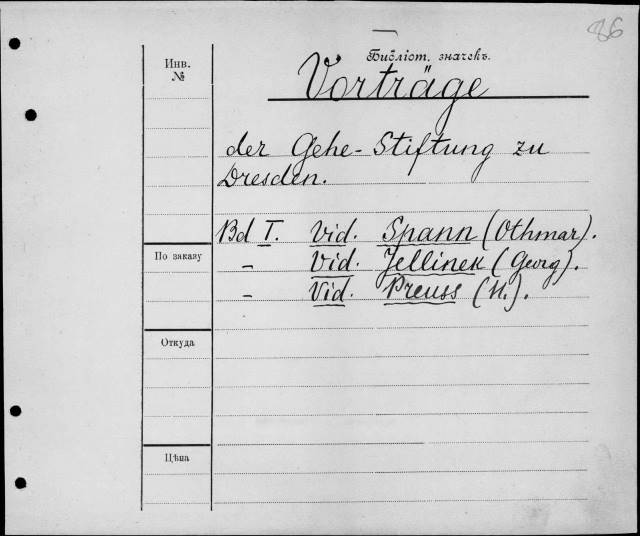 86
Библіот. значекъ.
Инв.
№
Vorträge
der Gehe-Stiftung zu
Dresden.
Bd I. Vid. Spann (Othmar).
По заказу
– Vid. Jellinek (Georg).
– Vid. Preuss (H.).
Откуда
Цѣна